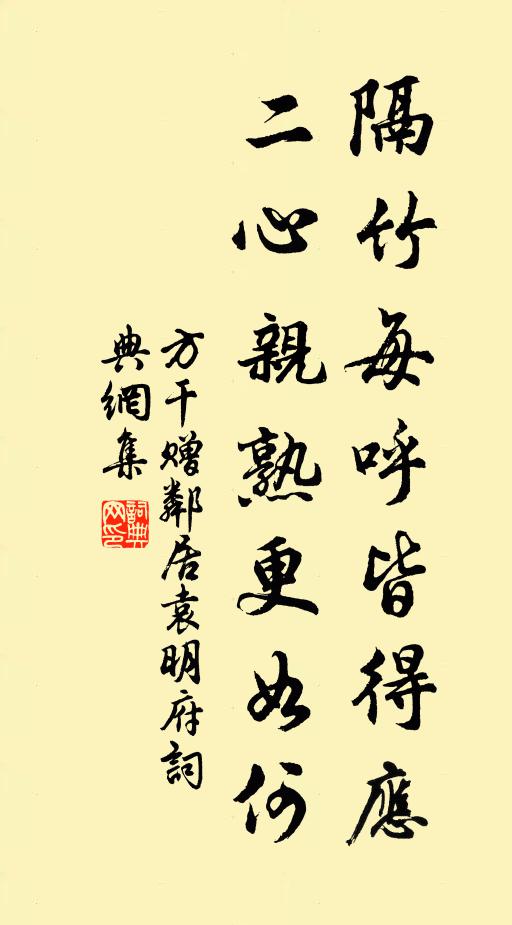 隔竹每呼皆得應
二心親熟更如何
方干赠鄰居袁明府詞
典網集
詞典网印